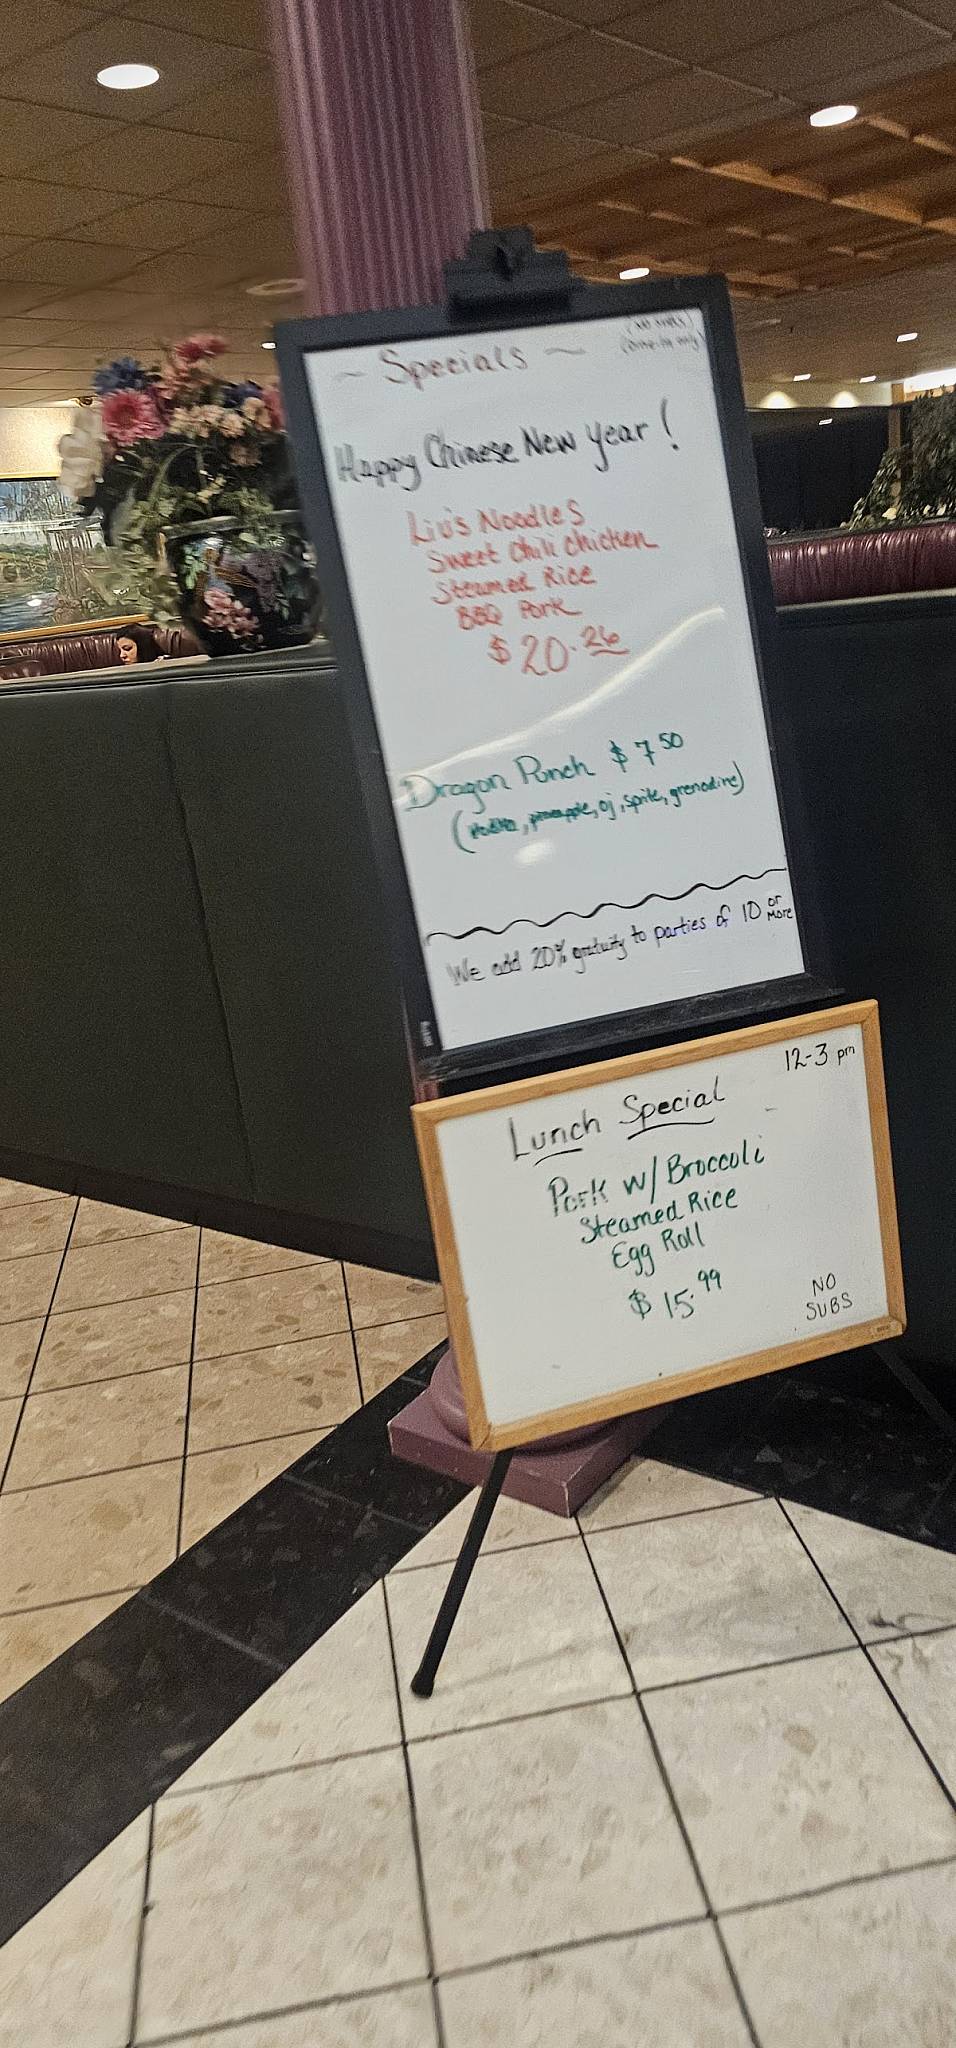 ~ Specials ~
(no subs)
(dine-in only)
Happy Chinese New Year!
Liu's Noodles
Sweet Chili Chicken
Steamed Rice
BBQ Pork
$20.26
Dragon Punch $7 50
(Vodka, pineapple, oj, sprite, grenadine)
We add 20% gratuity to parties of 10 or more
12-3 pm
Lunch Special
Pork w/ Broccoli
Steamed Rice
Egg Roll
$15.99
NO
SUBS